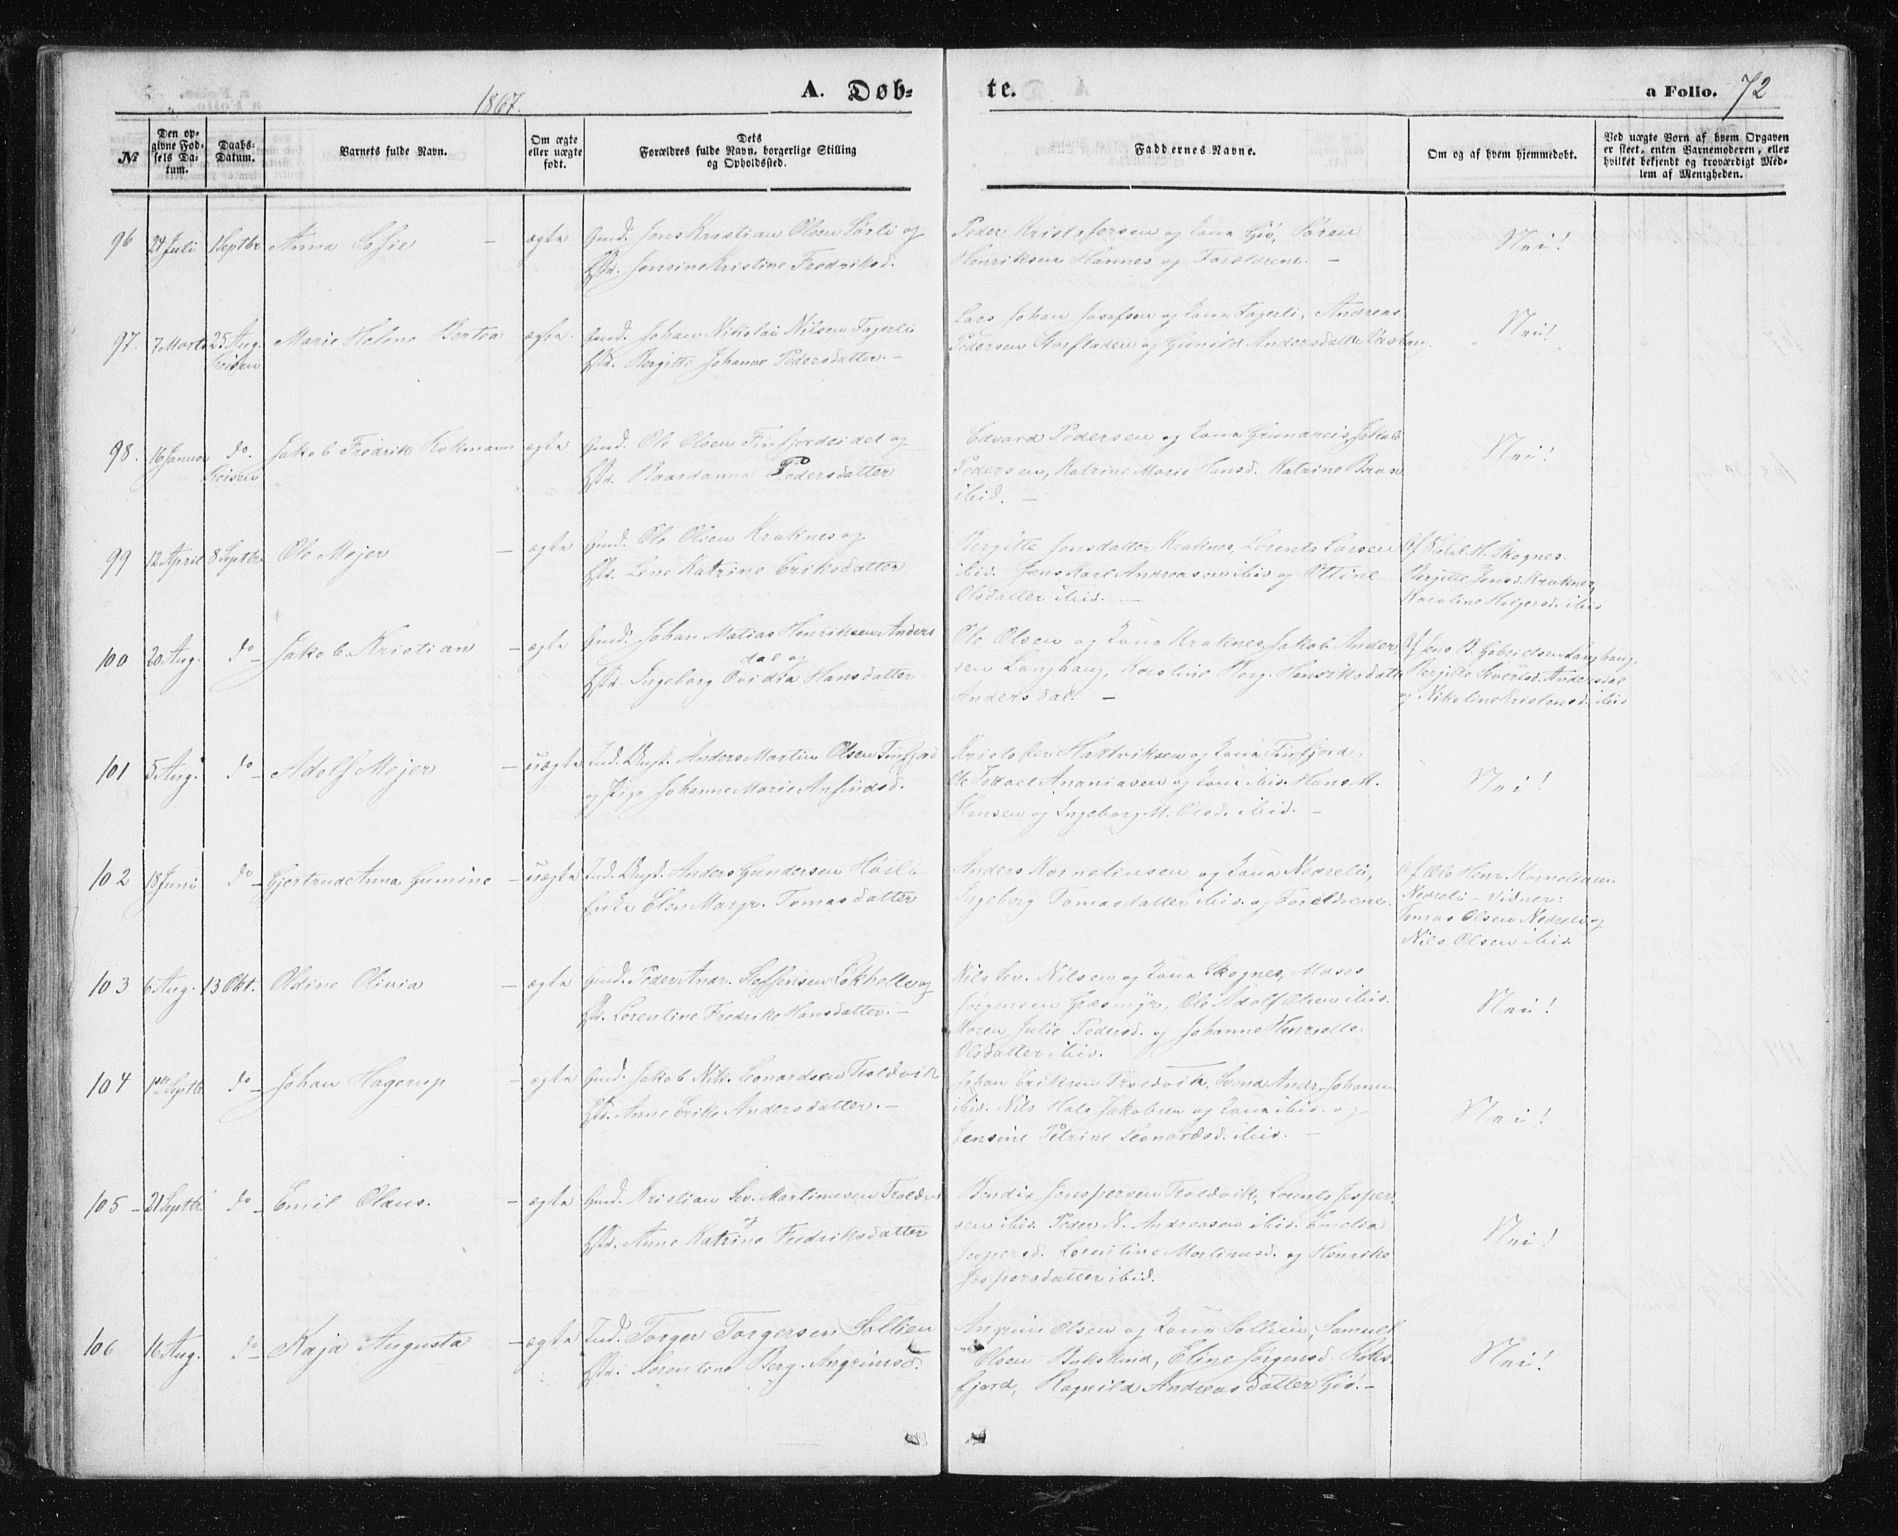 1867.
A. Døb-
te.
a Folio. 72
No
Den op-
givne Fød-
sels Da-
tum.
Daabs-
Datum.
Barnets fulde Navn.
Om ægte
eller uægte
født.
Dets
Forældres fulde Navn, borgerlige Stilling
og Opholdssted.
Faddernes Navne.
Om og af hvem hjemmedøbt.
Ved uægte Børn af hvem Opgaven
er skeet, enten Barnemoderen, eller
hvilket bekjendt og troværdigt Med-
lem af Menigheden.
96 24 Juli 1 Septbr Anna Sofie – ægte Gmd. Jens Kristian Olsen Sørli og
Hstr. Jensine Kristine Fredriksd.
Peder Kristofersen og Kone Giö, Sören
Henriksen Hannes og Foreldrene. –
Nei!
97. 7 Marts 25 Aug. Marie Helene Bertea ægte Gmd. Johan Nikolai Nilsen Fagerli
Hstr. Bergitte Johanne Pedersdatter. –
Lars Johan Josefsen og Kone Fagerli, Andreas
Pedersen Storfladen og Gunild Andersdatter
Nei!
98. 16 Januar do. Jakob Fredrik Kokmann ægte Gmd. Ole Olsen Finfjordeidet og
Hstr. Pedersdatter
Edvard Pedersen og Kone Grundreis, Jakob
Pedersen, Katrine Marie Hansd. Katrine
ibid. –
Nei!
99 12 April 8 Septbr Ole Mejer – ægte Gmd. Ole Olsen Kraknes og
Hstr. Lene Katrine Eriksdatter
Bergitte Jonsdatter Kraknes, Lorents Larsen
ibid. Jens Karl Andreasen ibid og Ottine
Olsdatter ibid. –
Af H. Skognes.
Bergitte Jonsd. Kraknes,
Karoline Holgersd. ibid
100 20 Aug. do Jakob Kristian – ægte Gmd. Johan Matias Henriksen Anders
dal og
Hstr. Ingeborg Ovidia Hansdatter
Ole Olsen og Kone Kraknes, Jakob Ander
sen Langhaug, Karoline Marg. Henriksdatter
Andersdal. –
Af Jens B. Gabrielsen Langhaug.
Bergitte Andersdal
og Nikoline Kristensd. ibid
101 5 Aug. do Adolf Mejer – uægte Ind. Ungk. Anders Martin Olsen Finfjord
og Pige Johanne Marie Anfindsd.
Kristofer Hartviksen og Kone Finfjord,
Ole Israel Ananiasen og Kone ibid. Hans M.
Hansen og Ingeborg M. Olsd. ibid. –
Nei!
102 18 Juni do Gjertrude Anna Gumine – uægte Ind. Ungk. Anders Gundersen Høili
Enke Elen Margr. Tomasdatter
Anders Kornelinsen og Kone Nedreli,
Ingeborg Tomasdatter ibid. og Foreldrene.
Af Ole Henr. Korneliusen
Nedreli – Vidner:
Tomas Olsen Nedreli og
Nils Olsen ibid.
103 6 Aug. 13 Okt. Oldine Olivia – ægte Gmd. Peder Andr. Steffensen Lökhelle og
Hstr. Lorentine Fredrike Hansdatter. –
Nils Sev. Nilsen og Kone Skognes, Moses
Jørgensen Græsmyr, Ole Adolf Olsen ibid.
Maren Julie Pedersd. og Johanne Henriette
Olsdatter ibid.
Nei!
104 1ste Septbr. do Johan Hagerup – ægte Gmd. Jakob Nik. Leonardsen Troldvik
Hstr. Anne Erike Andersdatter. –
Johan Eriksen Troldvik, Andr. Johanns
ibid. Nils Hals Jakobsen og Kone ibid. og
Jensine Petrine Leonardsd. ibid. –
Nei!
105 – 21 Septbr. do Emil Olaus. – ægte Gmd. Kristian Sev. Martinusen Troldvik
og
Hstr. Anne Katrine Fredriksdatter
Bendix Jenspersen Troldvik, Lorents Jesper
sen ibid. Peder N. Andreassen ibid. Emelia
Jespersd. Lorentine Martinusd. og Henrikke
Jespersdatter ibid.
Nei!
106 16 Aug. do Kaja Augusta – ægte Ind. Torger Torgersen Sollien
Hstr. Lorentine Berg. Angrimsd.
Angrim Olsen og Kone Sollien, Samuel
Olsen Bukskind, Eline Jørgensd.
fjord, Ragnild Andreasdatter Giö. –
Nei!